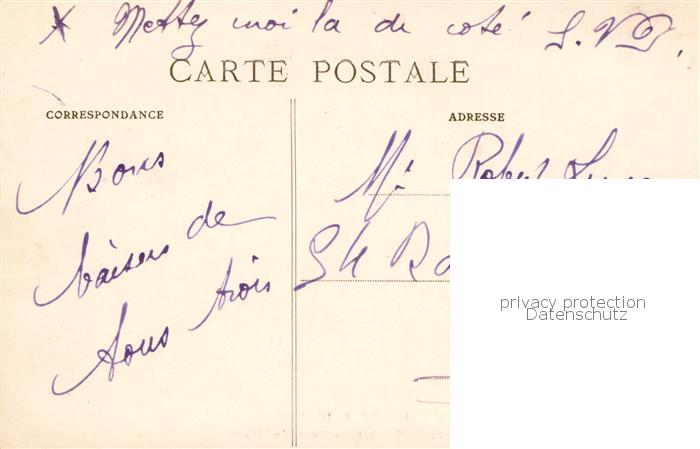 * Mettez moi la de coté S.V.P.
CARTE POSTALE
CORRESPONDANCE
ADRESSE
Bons
baisers de
tous trois
Mr Robert
privacy protection
Datenschutz